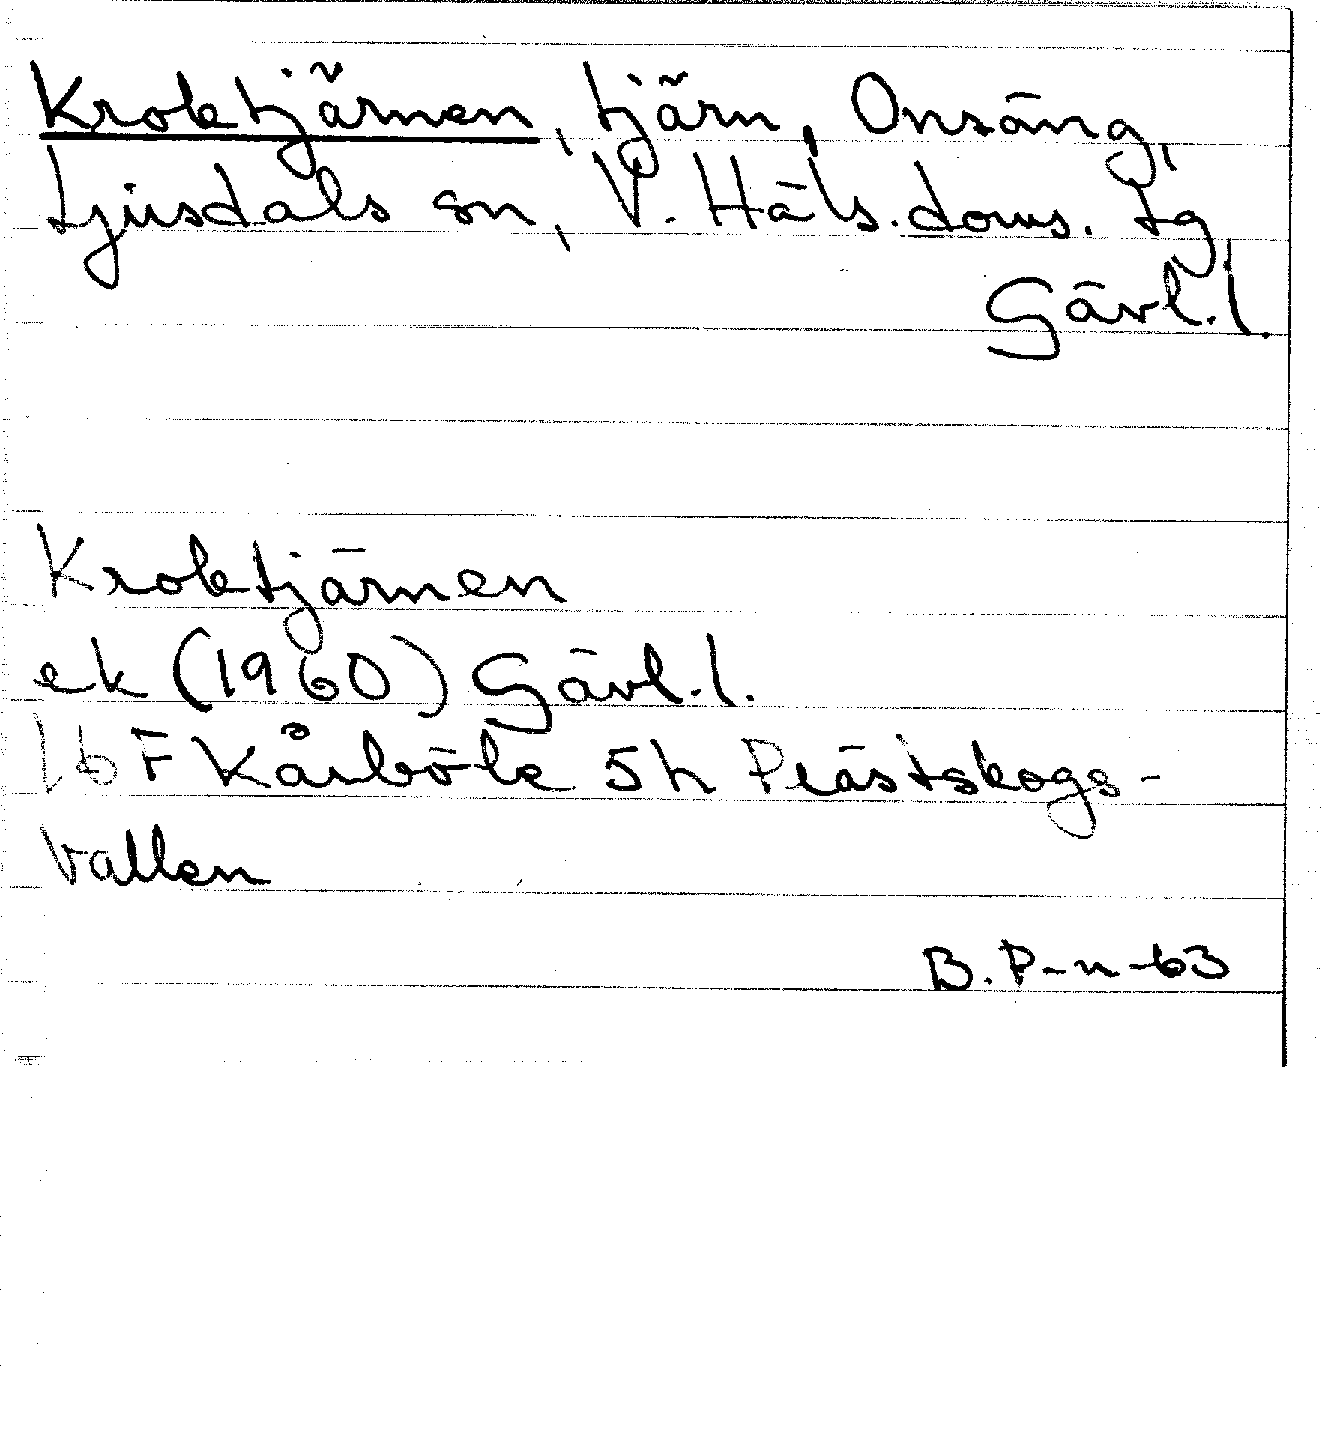 Kroktjärnen, tjärn, Onsäng,
Ljusdals sn, V. Häls. doms. tg,
Gävl.l.
Kroktjärnen
ek (1960) Gävl.l.
16 F Kårböle 5h Prästskogs-
vallen
B. P-n-63